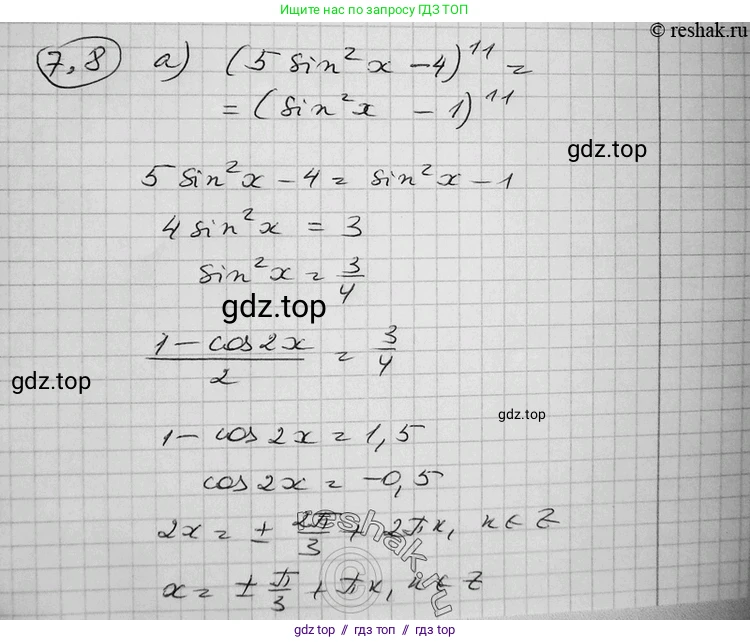 Ищите нас по запросу ГДЗ ТОП
© reshak.ru
7,8 а) (5 sin²x − 4)¹¹ =
= (sin²x − 1)¹¹
gdz.top
5 sin²x − 4 = sin²x − 1
4 sin²x = 3
sin²x = 3/4
gdz.top
(1 − cos2x)/2 = 3/4
gdz.top
gdz.top
1 − cos2x = 1,5
cos2x = −0,5
2x = ± 2π/3 + 2πk, k ∈ Z
x = ± π/3 + πk, k ∈ Z
reshak.ru
gdz top // гдз топ // гдз.top